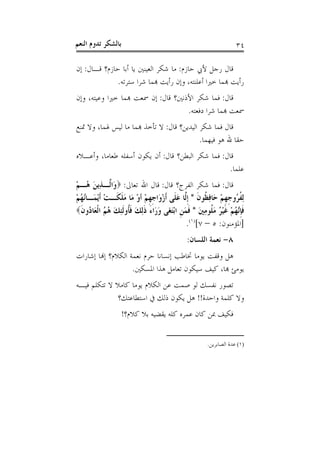 ٣٤
بالشكر تدوم النعم
قال رجل لأبي حازم: ما شكر العينين يا أبا حازم؟ قال: إن
رأيت بهما خيرا أعلنته، وإن رأيت بهما شرا سترته.
قال: فما شكر الأذنين؟ قال: إن سمعت بهما خيرا وعيته، وإن
سمعت بهما شرا دفعته.
قال فما شكر اليدين؟ قال: لا تأخذ بهما ما ليس لهما، ولا تمنع
حقا لله هو فيهما.
قال: فما شكر البطن؟ قال: أن يكون أسفله طعاما، وأعلاه
علما.
قال: فما شكر الفرج؟ قال: قال الله تعالى: ﴿وَالَّذِينَ هُمْ
لِفُرُوجِهِمْ حَافِظُونَ * إِلَّا عَلَى أَزْوَاجِهِمْ أَوْ مَا مَلَكَتْ أَيْمَانُهُمْ
فَإِنَّهُمْ غَيْرُ مَلُومِينَ * فَمَنِ ابْتَغَى وَرَاءَ ذَلِكَ فَأُولَئِكَ هُمُ الْعَادُونَ﴾
[المؤمنون: ٥ – ٧](١).
٨- نعمة اللسان:
هل وقفت يوما تخاطب إنسانا حرم نعمة الكلام؟ إنها إشارات
يومئ بها، كيف سيكون تعامل هذا المسكين.
تصور نفسك لو صمت عن الكلام يوما كاملا لا تتكلم فيه
ولا كلمة واحدة!! هل يكون ذلك في استطاعتك؟
فكيف بمن كان عمره كله يقضيه بلا كلام؟!
(١) عدة الصابرين.